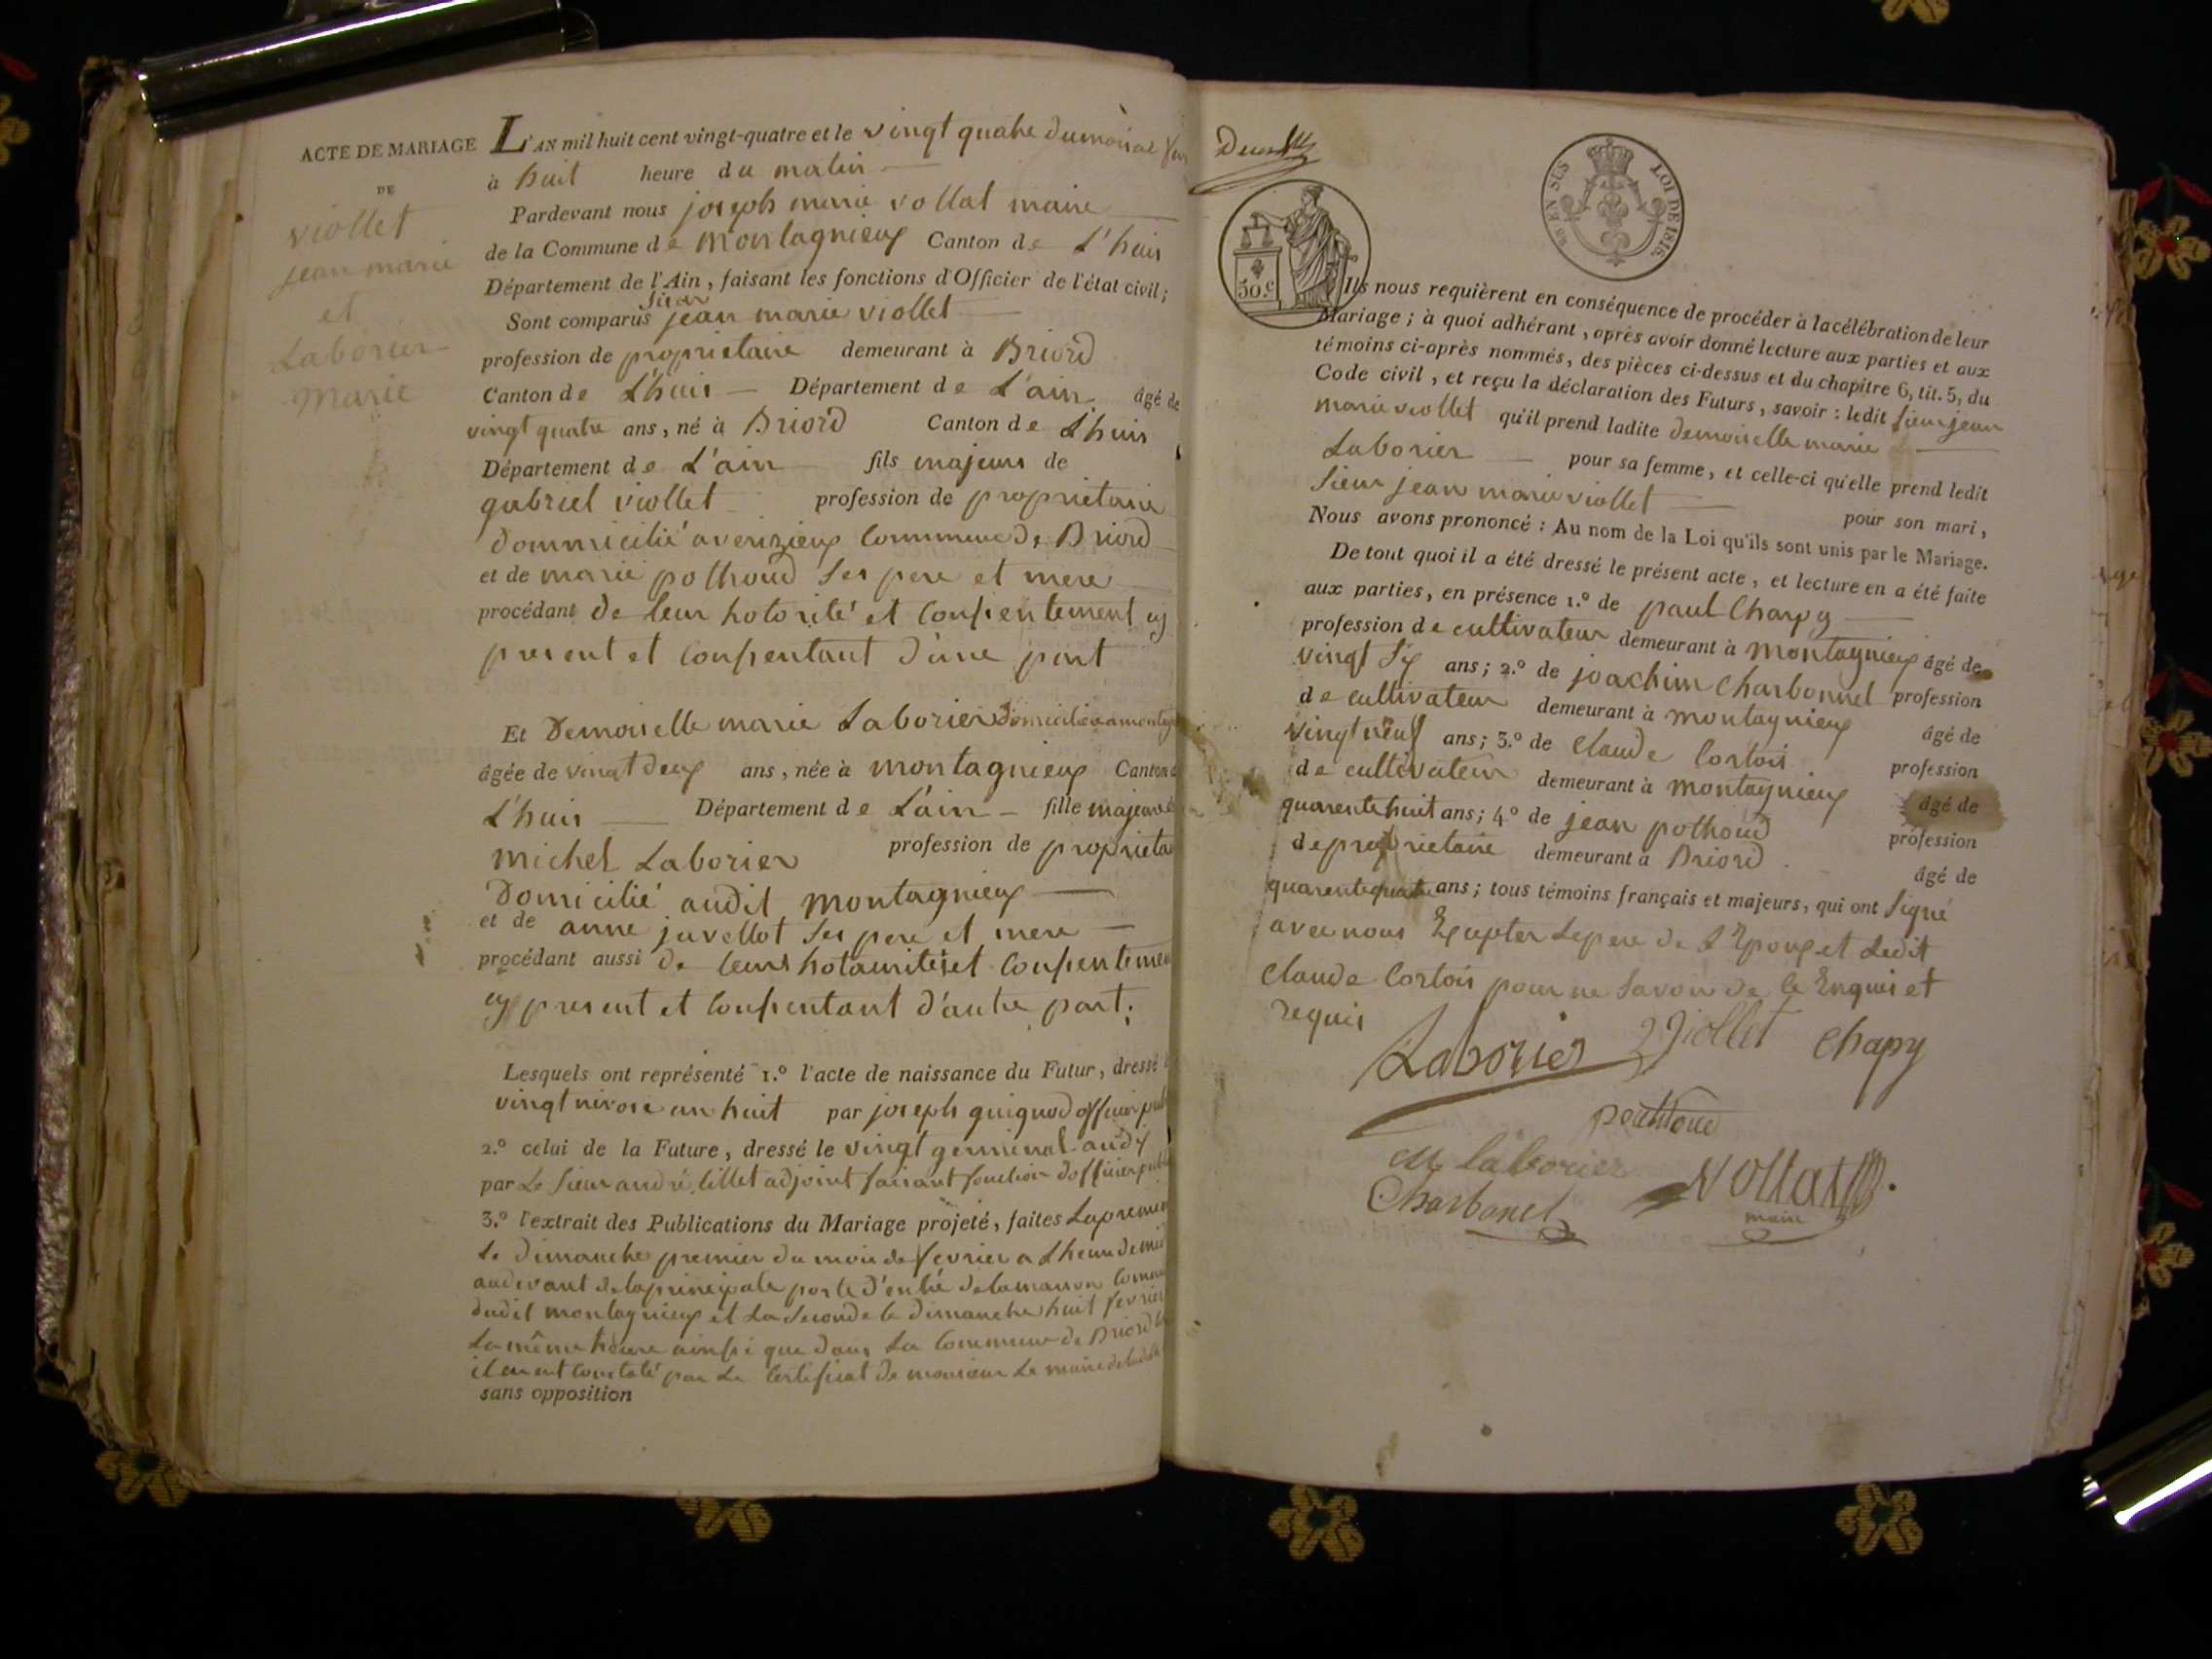 ACTE DE MARIAGE
DE
viollet
jean marie
et
Laborier
Marie
L'AN mil huit cent vingt-quatre et le vingt quatre du mois de
à huit heure du matin
Pardevant nous joseph marie vollat maire
de la Commune de montagnieux Canton de L'huis
Département de l'Ain, faisant les fonctions d'Officier de l'état civil;
sieur
Sont comparus jean marie viollet
profession de proprietaire demeurant à Briord
Canton de L'huis Département de L'ain âgé de
vingt quatre ans, né à Briord Canton de L'huis
Département de L'ain fils majeur de
gabriel viollet profession de proprietaire
dommicilié a verizieux Commune de Briord
et de marie pothoud ses pere et mere
procédant de leur hotorité et Consientement cy
present et Consientant d'une part
Et Demoiselle marie Laborier domiciliée a montag
âgée de vingt deux ans, née à montagnieux Canton d
L'huis Département de L'ain fille majeure d
michel Laborier profession de proprieta
Domicilié audit montagnieux
et de anne juvellot ses pere et mere
procédant aussi de leurs hotaurités et Consientemen
cy present et Consientant d'autre part;
Lesquels ont représenté 1.° l'acte de naissance du Futur, dressé
vingt nivose an huit par joseph guignod officier pub
2.° celui de la Future, dressé le vingt germinal an dix
par Le sieur andré tillet adjoint faisant fonction d'officier publ
3.° l'extrait des Publications du Mariage projeté, faites La premier
Le dimanche premier du mois de fevrier a L'heure de mid
audevant de la principale porte d'entré de la maison Commu
dudit montagnieux et La seconde le dimanche huit fevrier
La même heure ainsi que dans La Commune de Briord
il en est Constaté par Le Certificat de monsieur Le maire de ladi
sans opposition
50.C
EN SUS
LOI DE 1816
Ils nous requièrent en conséquence de procéder à la célébration de leur
Mariage; à quoi adhérant, après avoir donné lecture aux parties et aux
témoins ci-après nommés, des pièces ci-dessus et du chapitre 6, tit. 5, du
Code civil, et reçu la déclaration des Futurs, savoir: ledit sieur jean
marie viollet qu'il prend ladite demoiselle marie
Laborier pour sa femme, et celle-ci qu'elle prend ledit
sieur jean marie viollet pour son mari,
Nous avons prononcé: Au nom de la Loi qu'ils sont unis par le Mariage.
De tout quoi il a été dressé le présent acte, et lecture en a été faite
aux parties, en présence 1.° de paul Charpy
profession de cultivateur demeurant à montagnieux âgé de
vingt six ans; 2.° de joachim Charbonnel profession
de cultivateur demeurant à montagnieux âgé de
vingt neuf ans; 3.° de Claude Cortois profession
de cultivateur demeurant à montagnieux âgé de
quarente huit ans; 4.° de jean pothoud profession
de proprietaire demeurant à Briord âgé de
quarente quatre ans; tous témoins français et majeurs, qui ont signé
avec nous Excepter Le pere de L'Epoux et Ledit
Claude Cortois pour ne savoir de Ce Enquis et
requis
Laborier Viollet Chapy
pothoud
m laborier Vollat
Charbonel maire